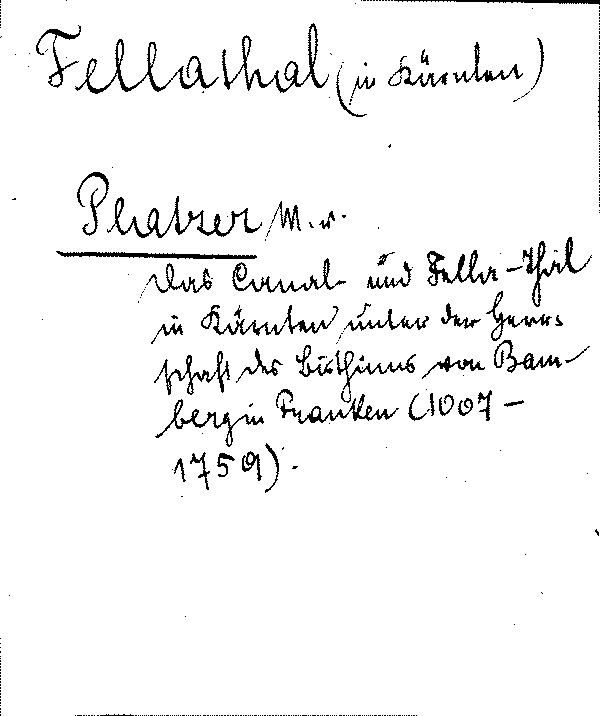 Fellathal (in Kärnten)
Platzer M. v.
Das Canal- und Fella-Thal
in Kärnten unter der Herr-
schaft des Bisthums von Bam-
berg in Franken (1007-
1759).